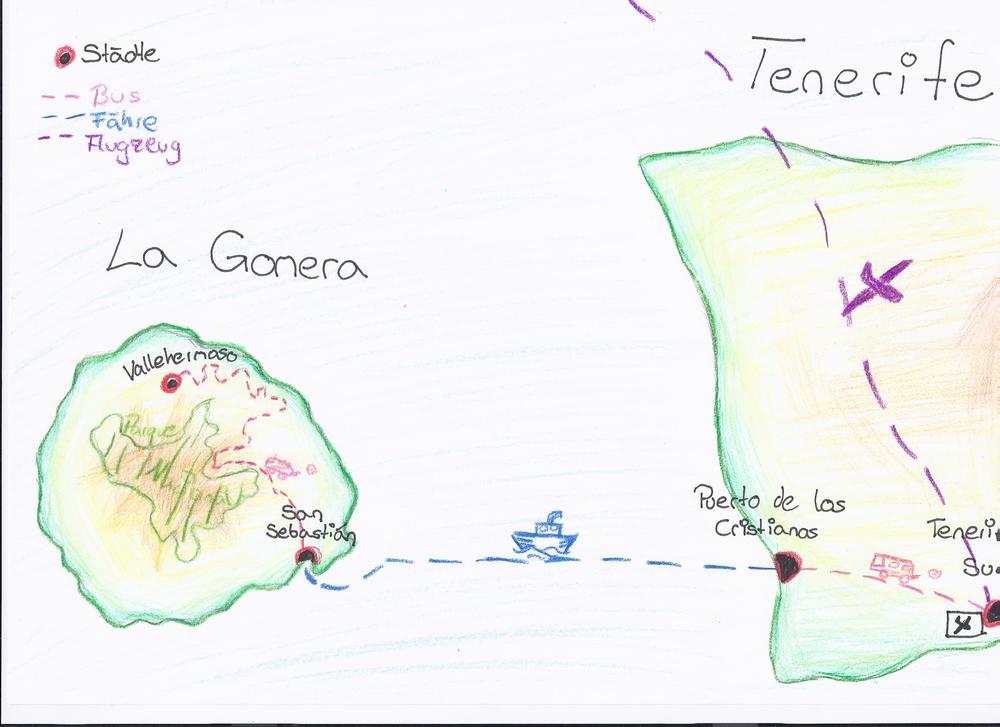 Städte
Bus
Fähre
Flugzeug
Tenerife
La Gomera
Vallehermoso
Parque
San
Sebastián
Puerto de los
Cristianos
Teneri
Su